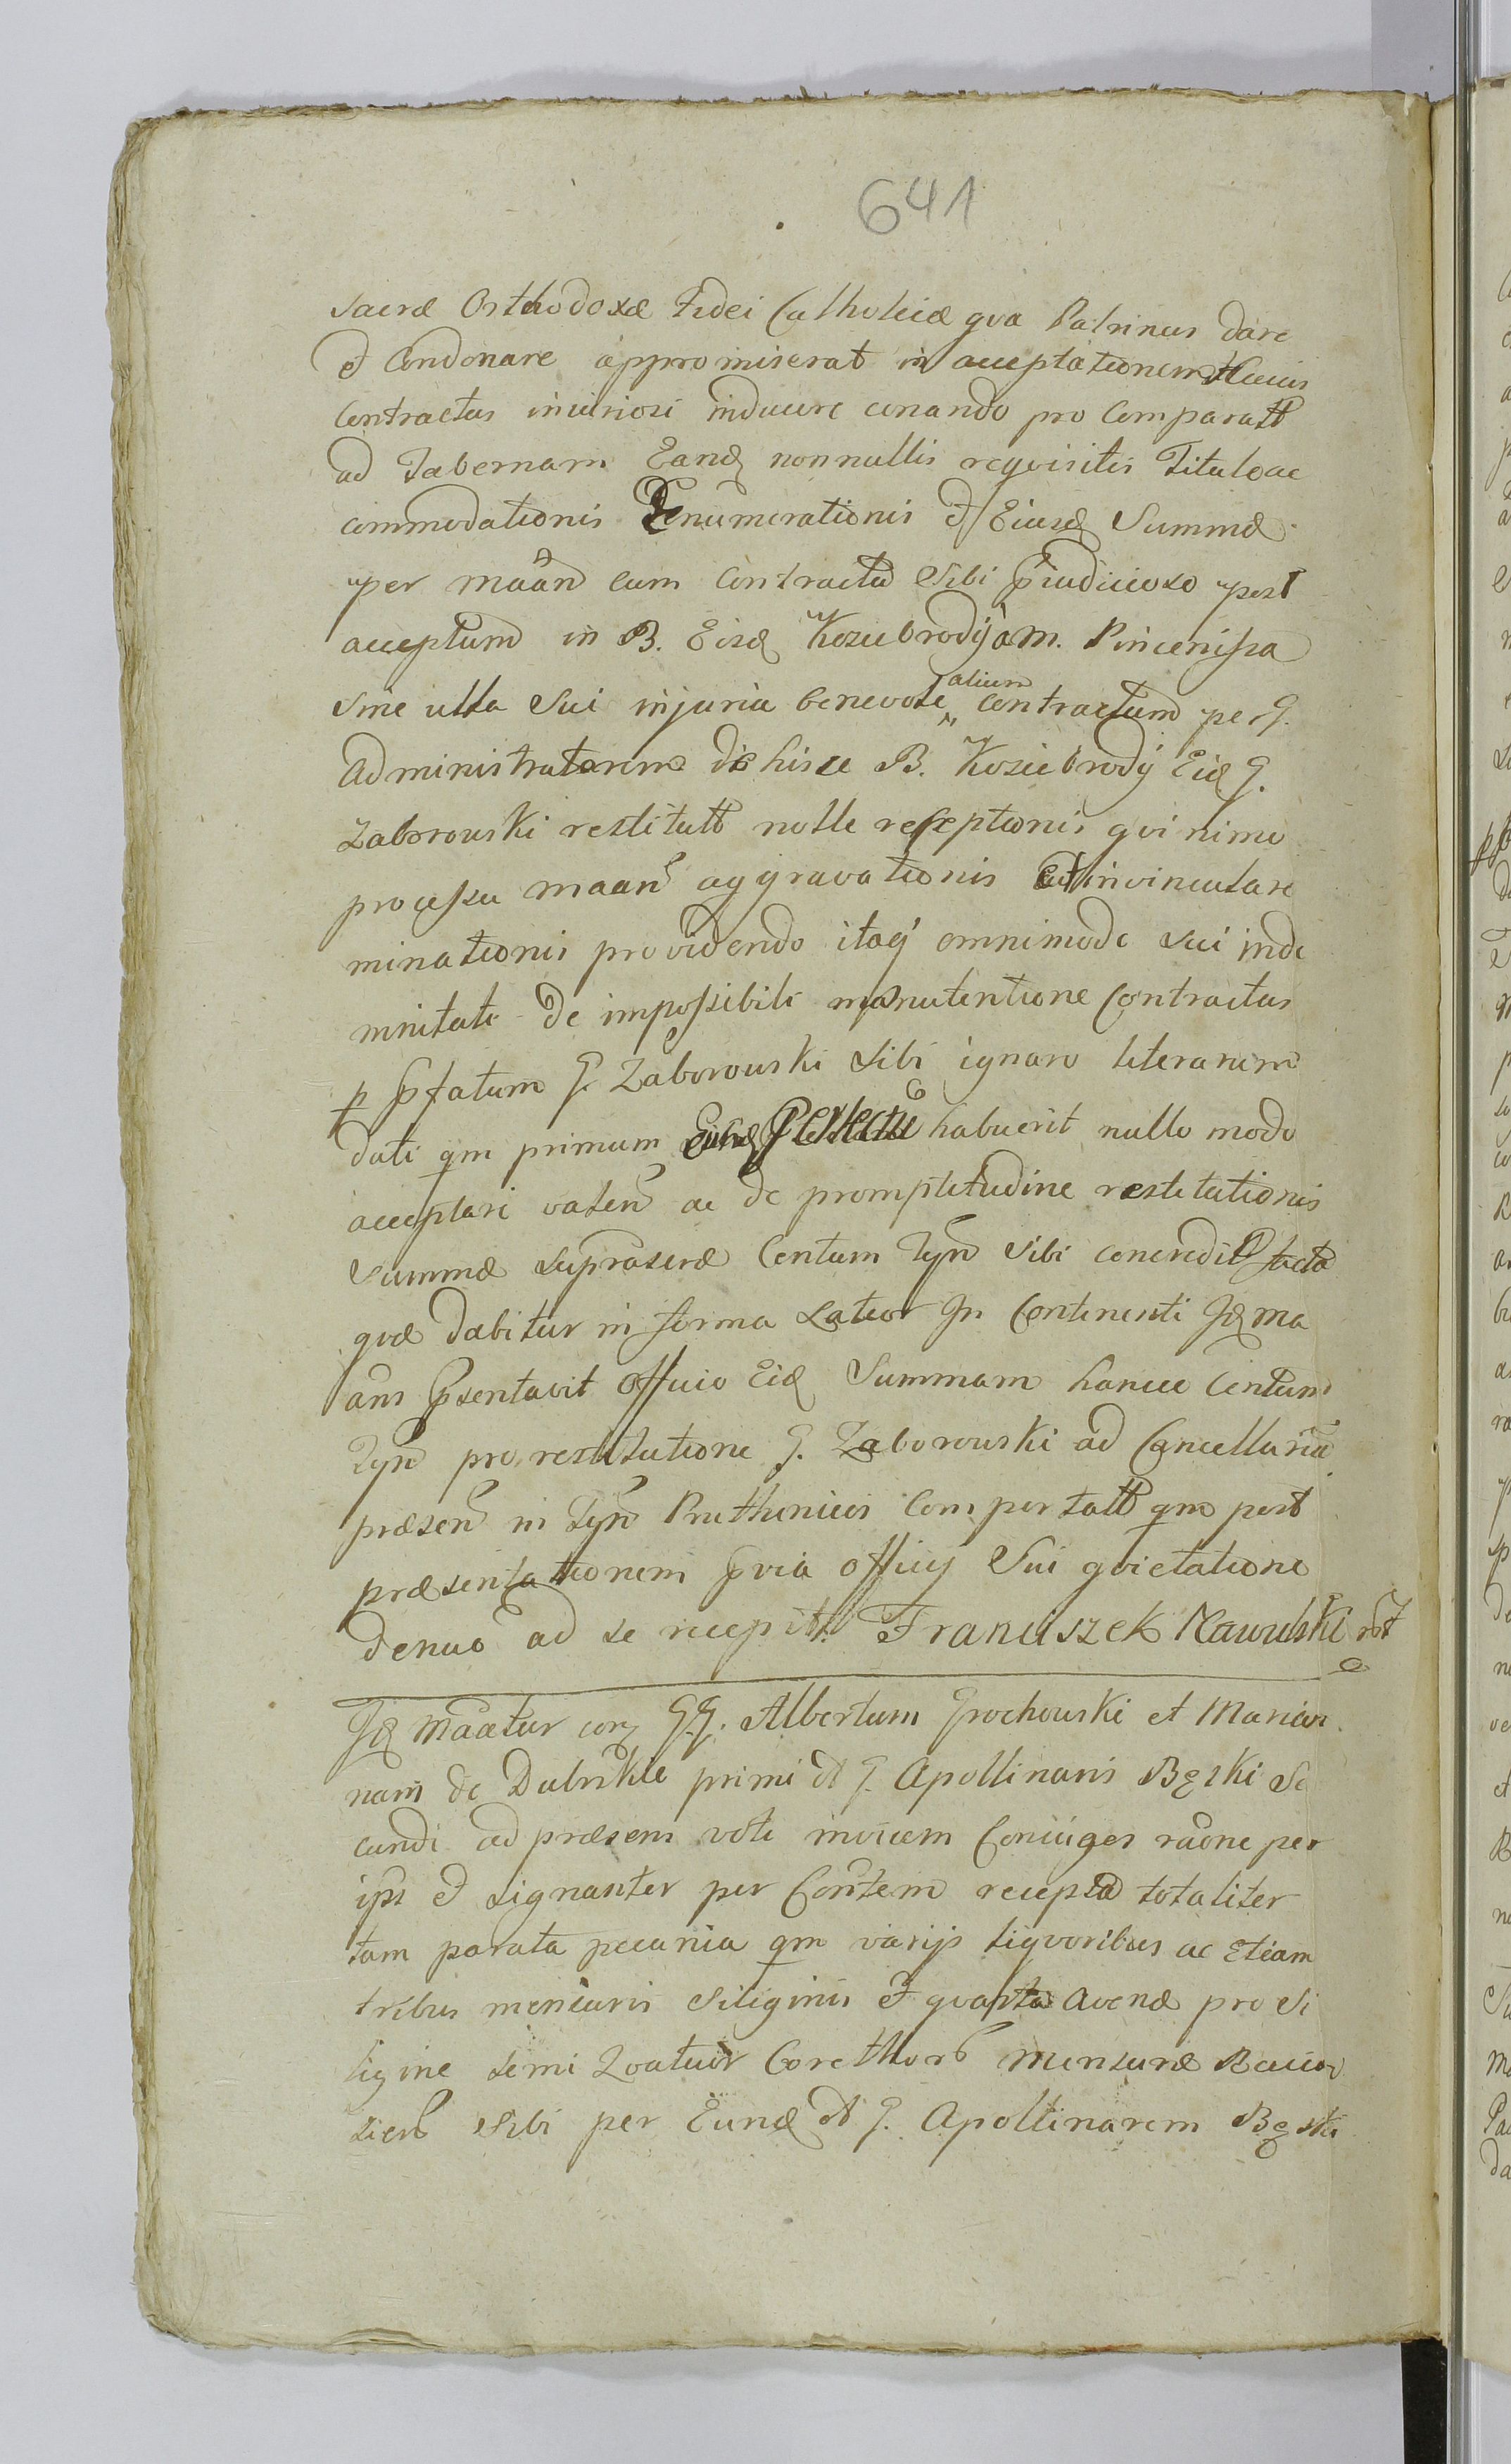 641
Sacræ Orthodoxæ Fidei Catholicæ qva Patrinus dare
et Condonare appromiserat in acceptationem Huius
Contractus iniuriosi inducere conando pro Comparatt
ad Tabernam Eand nonnullis reqvisitis Titulo ac
commodationis Denumerationis et Eiusd Summæ
per maan cum Contractu Sibi pjudicioso post
acceptum in B. Eisd Koziebrodÿ a M. Pincenissa
Sine ulla Sui injuria benevole alium Contractum per G.
Administratorem dictis B. Koziebrody Eid G.
Zaborowski restitutt nolle receptionis qvinimo
processu maan aggravationis Et invinculare
minationis providendo itaq omnimode sui inde
mnitati de impossibili manutentione Contractus
p pfatum G. Zaborowski Sibi ignaro literarum
dati qm primum Perlectu habuerit nullo modo
acceptari valen ac de promptitudine restitutionis
Summæ suprascræ Centum Tyn Sibi concredit facta
qvæ dabitur in forma Latior In Continenti Id ma
ans psentavit Officio Eid Summam hancce Centum
Tyn pro restitutione G. Zaborowski ad Cancellaria
præsen in Tyn Ruthenicis Comportatt qm post
præsentationem pvia Officij Sui qvietatione
denuo ad se recepit. Franciszek Nawulski
Id Maatur cor GG. Albertum Grochowski et Marian
nam de primi et G. Apollinaris Bęski Se
cundi ad præsens voti invicem Coniuges raone per
ips et signanter per Contem recepta totaliter
tam parata pecunia qm varijs liqvoribus ac Etiam
tribus mensuris Siliginis et qvarta Avenæ pro Si
ligine semi Qvatuor Corethor mensuræ Racion
sien Sibi per Eund et G. Apollinarem Bęski